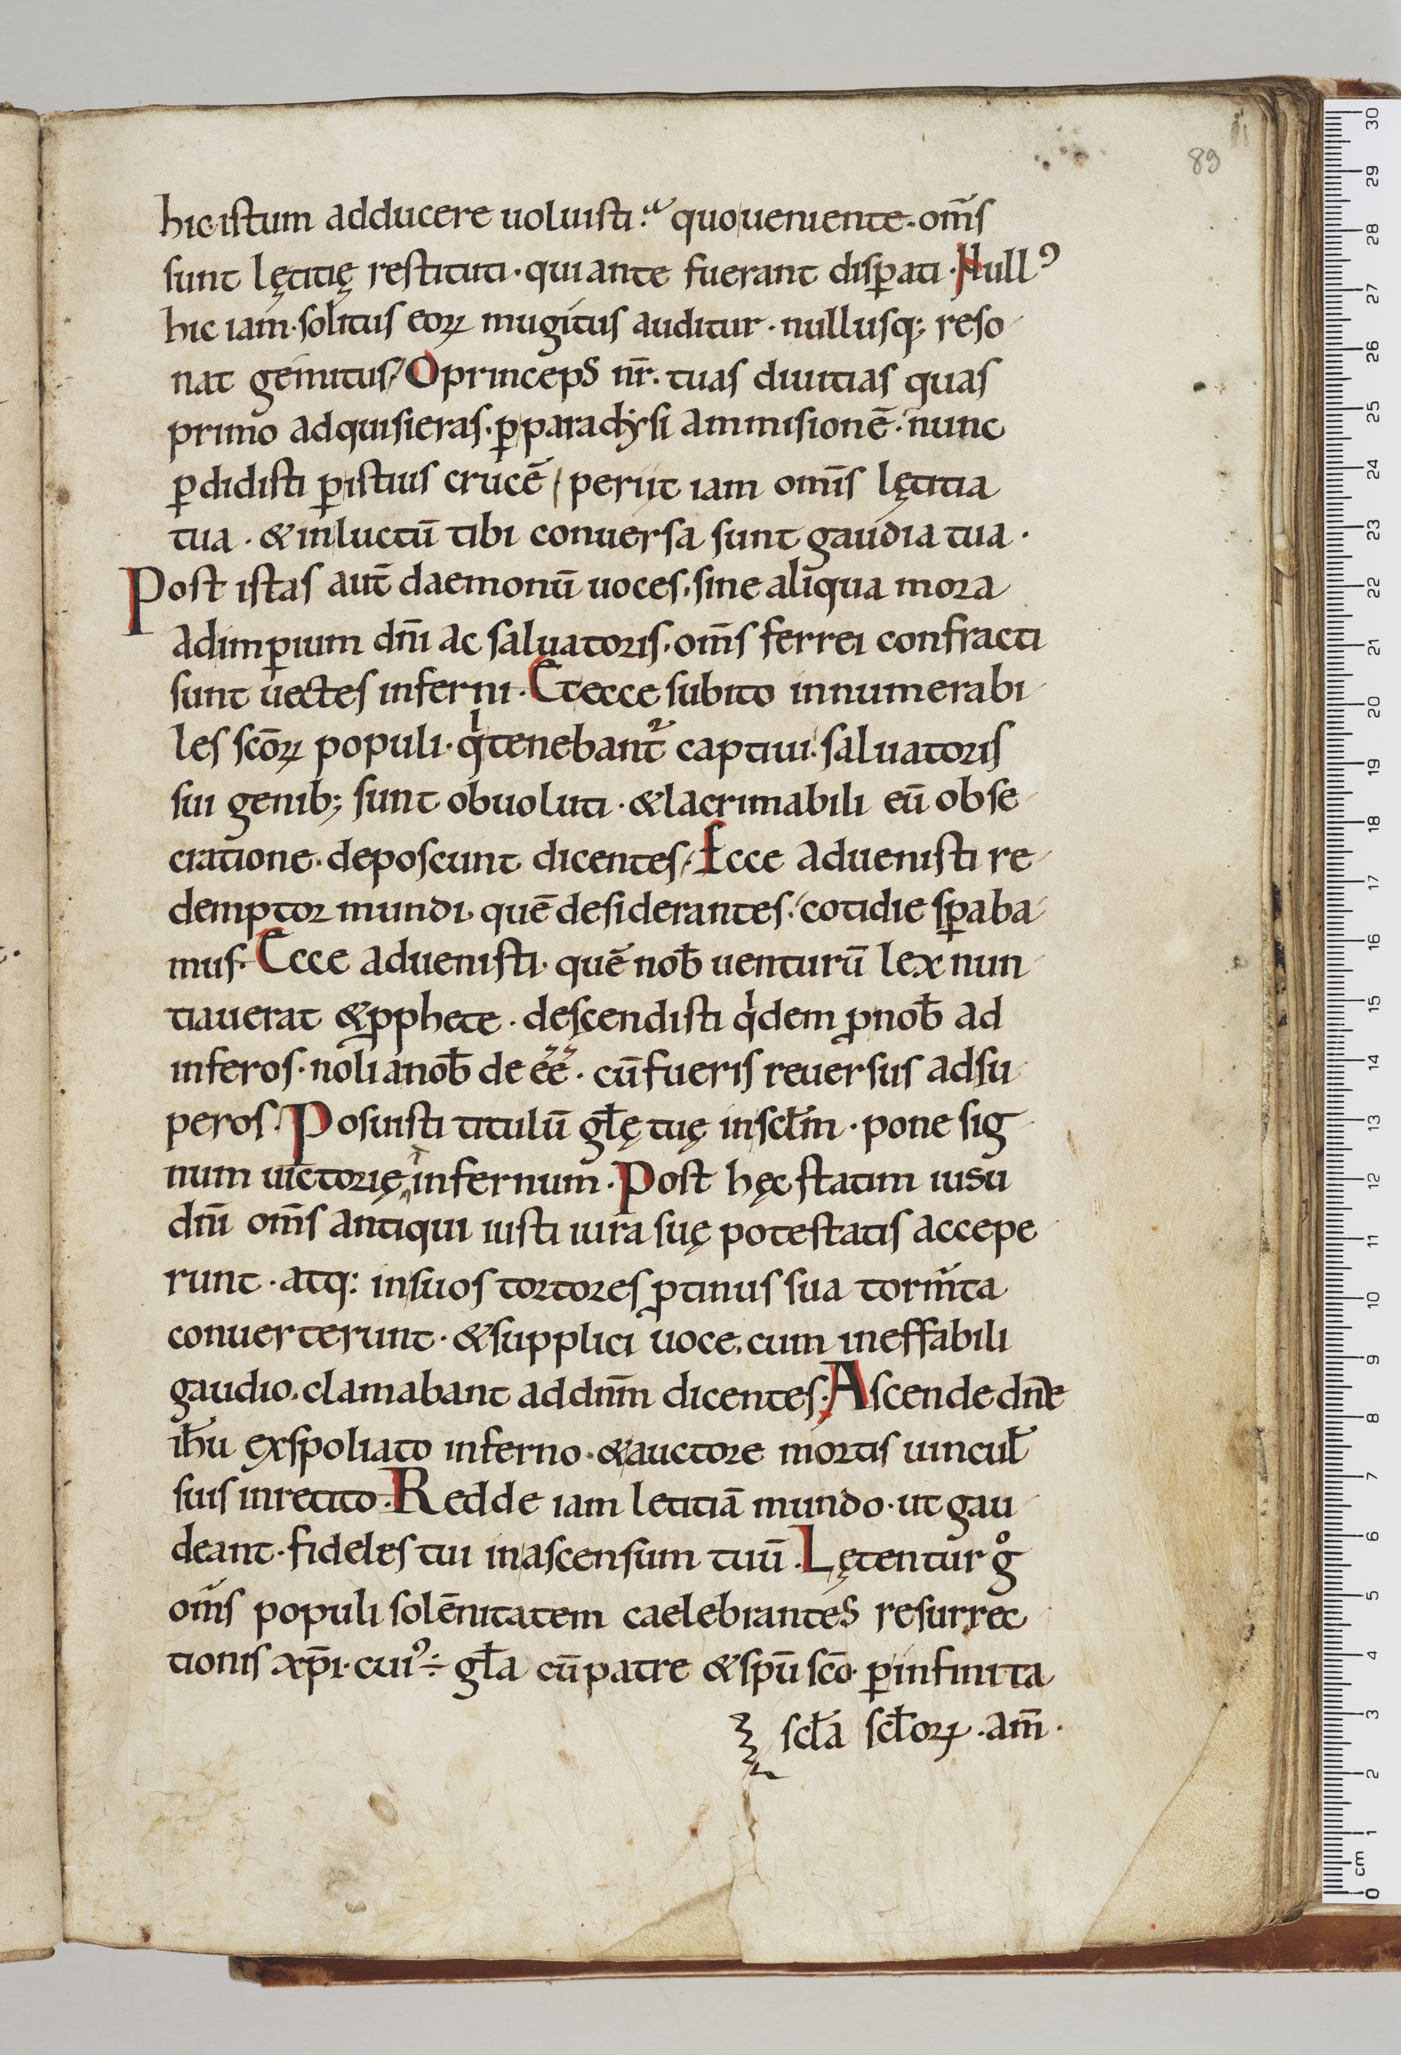 89
hic istum adducere uoluisti. quo ueniente. om̅s
sunt lętitię restituti · qui ante fuerant disꝑati · Nullꝰ
hic iam · solitus eoꝝ mugitus auditur · nullusq; reso
nat gemitus / O princeps nr̅. tuas diuitias quas
primo adquisieras. ꝑ paradẏsi ammisionē. nunc
ꝑdidisti ꝑ istius crucē / periit iam om̅is lętitia
tua · & in luctū tibi conuersa sunt gaudia tua ·
Post istas aut̅ daemonū uoces. sine aliqua mora
ad imꝑium dn̅i ac saluatoris. om̅s ferrei confracti
sunt uectes inferni. Et ecce subito innumerabi
les sc̅oꝝ populi · qͥ tenebant᷑ captiui. saluatoris
sui genib; sunt obuoluti · & lacrimabili eū obse
cratione. deposcunt dicentes / Ecce aduenisti re
demptor mundi. quē desiderantes. cotidie sꝑaba
mus. Ecce aduenisti. quē nob̅ uenturū lex nun
tiauerat & ꝓphete · descendisti qͥdem ꝓ nob̅ ad
inferos · noli a nob̅ de ee̅ · cū fueris reuersus ad su
peros. Posuisti titulū gl̅ę tuę in scl̅m · pone sig
num uictorię in infernum. Post hęc statim iusu
dn̅i om̅s antiqui iusti iura suę potestatis accepe
runt · atq: in suos tortores ꝓtinus sua torm̅ta
conuerterunt · & supplici uoce. cum ineffabili
gaudio. clamabant ad dn̅m dicentes. Ascende dn̅e
ih̅u exspoliato inferno · & auctore mortis uincul̅
suis inretito. Redde iam letitiā mundo · ut gau
deant · fideles tui in ascensum tuū. Lętentur gͦ
om̅s populi solēnitatem caelebrantes resurrec
tionis xp̅i. cuiꝰ ÷ gl̅a cū patre & spū sc̅o. ꝑ infinita
scl̅a scl̅oꝝ · am̅ ·